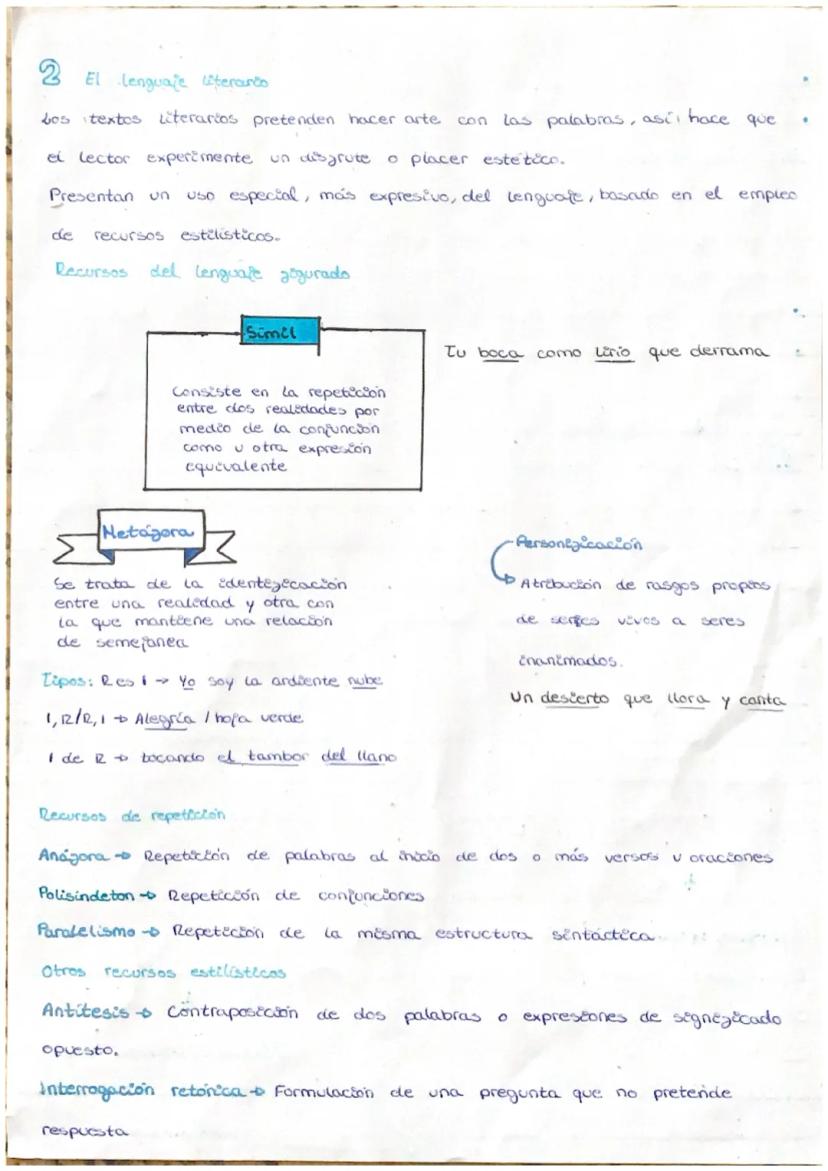 2 El lenguaje literario
Los textos literarios pretenden hacer arte con las palabras, así hace que
el lector experimente un disfrute o placer estético.
Presentan un uso especial, más expresivo, del lenguaje, basado en el empleo
de recursos estilísticos.
Recursos del lenguaje figurado
Símil
Consiste en la repetición
entre dos realidades por
medio de la conjunción
como u otra expresión
equivalente
Tu boca como lirio que derrama
Metáfora
Se trata de la identificación
entre una realidad y otra con
la que mantiene una relación
de semejanea
Tipos: R es I → Yo soy la ardiente nube
I, R/R, I → Alegría / hoja verde
I de R → tocando el tambor del llano
Personificación
→ Atribución de rasgos propios
de seres vivos a seres
inanimados.
Un desierto que llora y canta
Recursos de repetición
Anáfora → Repetición de palabras al inicio de dos o más versos u oraciones
Polisíndeton → Repetición de conjunciones
Paralelismo → Repetición de la misma estructura sintáctica
Otros recursos estilísticos
Antítesis → Contraposición de dos palabras o expresiones de significado
opuesto.
Interrogación retórica → Formulación de una pregunta que no pretende
respuesta